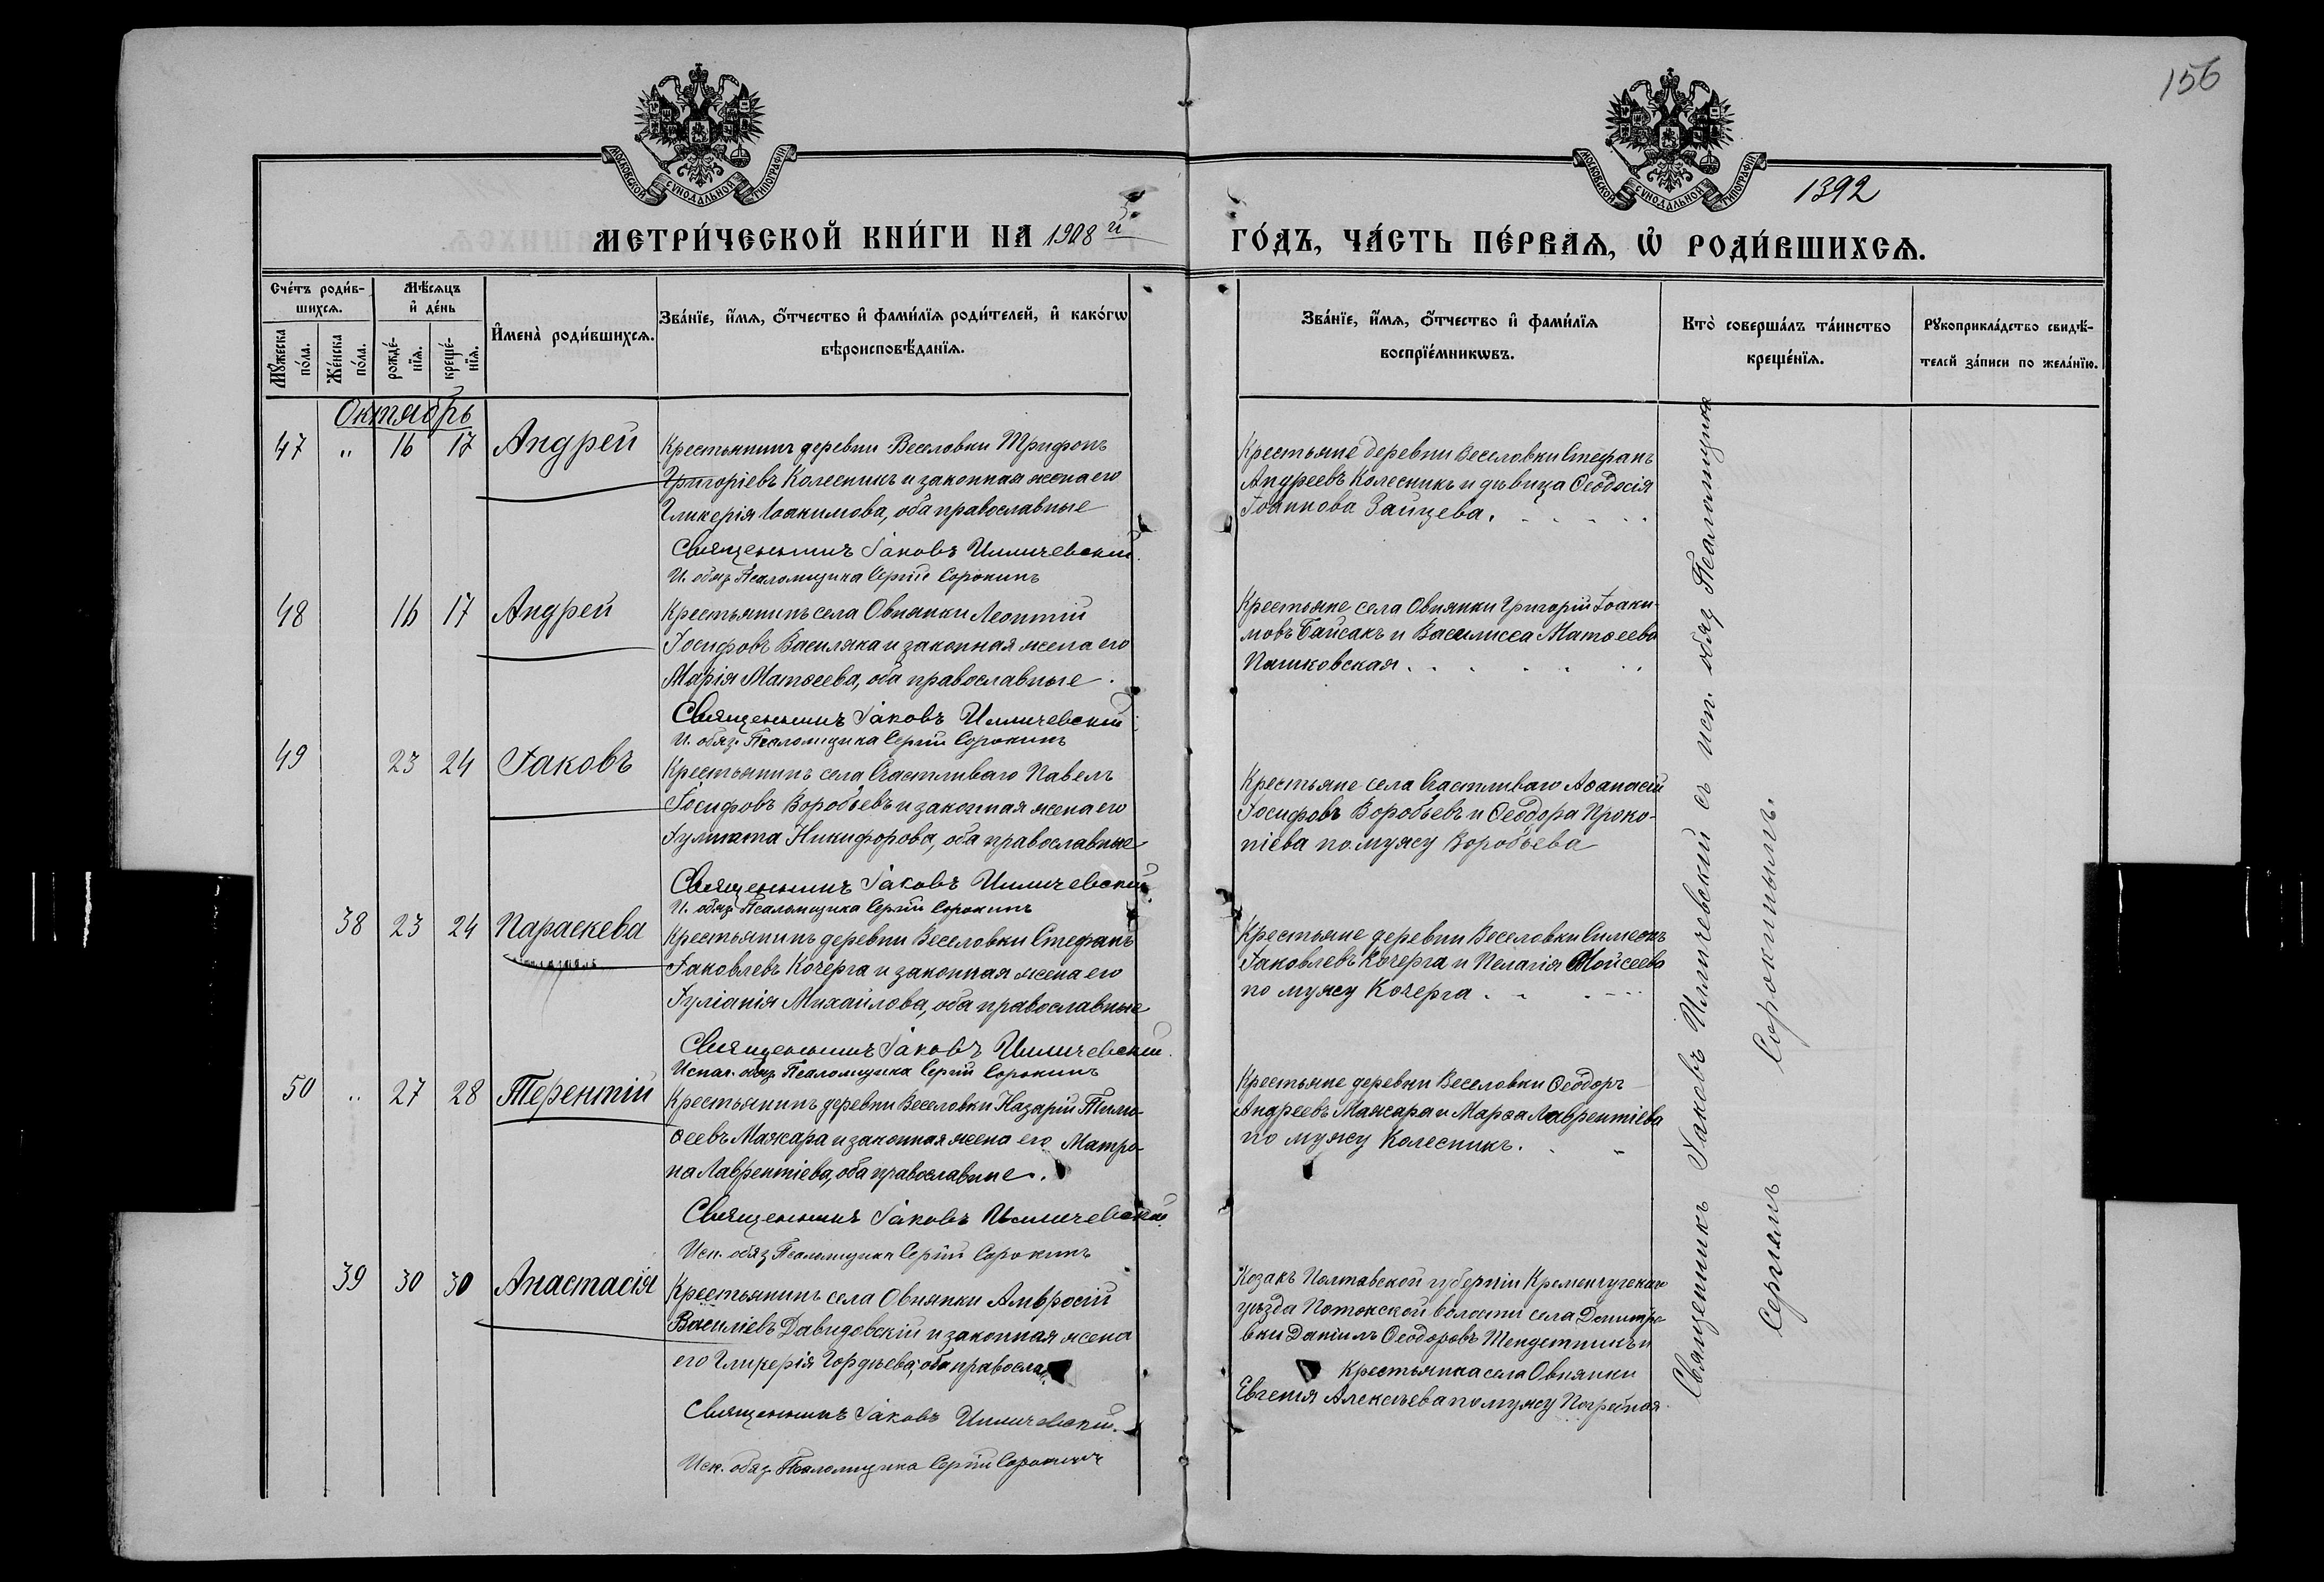 156
МОСКОВСКОЙ СѴНОДАЛЬНОЙ ТИПОГРАФІИ
МОСКОВСКОЙ СѴНОДАЛЬНОЙ ТИПОГРАФІИ
1392
МЕТРИ́ЧЕСКОЙ КНИ́ГИ НА 1908 й
ГО́ДЪ, ЧА́СТЬ ПЕ́РВАѦ, Ѡ҆ РОДИ́ВШИХСѦ.
Сче́тъ роди́в-
шихсѧ.
Мѣ́сѧцъ
и҆ де́нь
Мꙋ́жеска
по́ла.
Же́нска
по́ла.
рожде́-
нїѧ.
креще́-
нїѧ.
И҆мена̀ роди́вшихсѧ.
Зва́нїе, и҆́мѧ, ѻ҆́тчество и҆ фами́лїѧ роди́телей, и҆ како́гѡ
вѣроисповѣ́данїѧ.
Зва́нїе, и҆́мѧ, ѻ҆́тчество и҆ фами́лїѧ
воспрїе́мникѡвъ.
Кто̀ соверша́лъ та́инство
креще́нїѧ.
Рꙋкоприкла́дство свидѣ́-
телей за́писи по жела́нїю.
Октябрь
47 " 16 17 Андрей
Крестьянинъ деревни Веселовки Трифонъ
Григоріевъ Колесникъ и законная жена его
Гликерія Іоакимова, оба православные
Священникъ Іаковъ Илличевскій
И. обяз. Псаломщика Сергій Сорокинъ
Крестьяне деревни Веселовки Стефанъ
Андреевъ Колесникъ и дѣвица Ѳеодосія
Іоаннова Зайцева.
48 16 17 Андрей
Крестьянинъ села Овнянки Леонтій
Іосифовъ Василяка и законная жена его
Марія Матѳеева, оба православные.
Священникъ Іаковъ Илличевскій
И. обяз. Псаломщика Сергій Сорокинъ
Крестьяне села Овнянки Григорій Іоаки-
мовъ Байсакъ и Василисса Матѳеева
Пашковская.
49 23 24 Іаковъ
Крестьянинъ села Счастливаго Павелъ
Іосифовъ Воробьевъ и законная жена его
Іулитта Никифорова, оба православные
Священникъ Іаковъ Илличевскій
И. обяз. Псаломщика Сергій Сорокинъ
Крестьяне села Счастливаго Аѳанасій
Іосифовъ Воробьевъ и Ѳеодора Проко-
піева по мужу Воробьева
38 23 24 Параскева
Крестьянинъ деревни Веселовки Стефанъ
Іаковлевъ Кочерга и законная жена его
Іуліанія Михайлова, оба православные
Священникъ Іаковъ Илличевскій.
Испол. обяз. Псаломщика Сергій Сорокинъ
Крестьяне деревни Веселовки Симеонъ
Іаковлевъ Кочерга и Пелагія Моисеева
по мужу Кочерга.
50 " 27 28 Терентій
Крестьянинъ деревни Веселовки Назарій Тимо-
ѳеевъ Мажара и законная жена его Матро-
на Лаврентіева, оба православные.
Священникъ Іаковъ Илличевскій
Исп. обяз. Псаломщика Сергій Сорокинъ
Крестьяне деревни Веселовки Ѳеодоръ
Андреевъ Мажара и Марѳа Лаврентіева
по мужу Колесникъ.
39 30 30 Анастасія
Крестьянинъ села Овнянки Амвросій
Василіевъ Давидовскій и законная жена
его Гликерія Гордѣева, оба правосла
Священникъ Іаковъ Илличевскій.
Исп. обяз. Псаломщика Сергій Сорокинъ
Козакъ Полтавской губерніи Кременчугскаго
уѣзда Потокской волости села Дмитро-
вки Даніилъ Ѳеодоровъ и
Крестьянка села Овнянки
Евгенія Алексѣева по мужу Погребная.
Священникъ Іаковъ Илличевскій съ исп. обяз. Псаломщика
Сергіемъ Сорокинымъ.